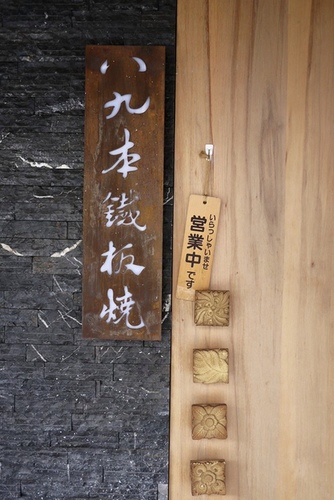 八九本鐵板燒
いらっしゃいませ
営業中です